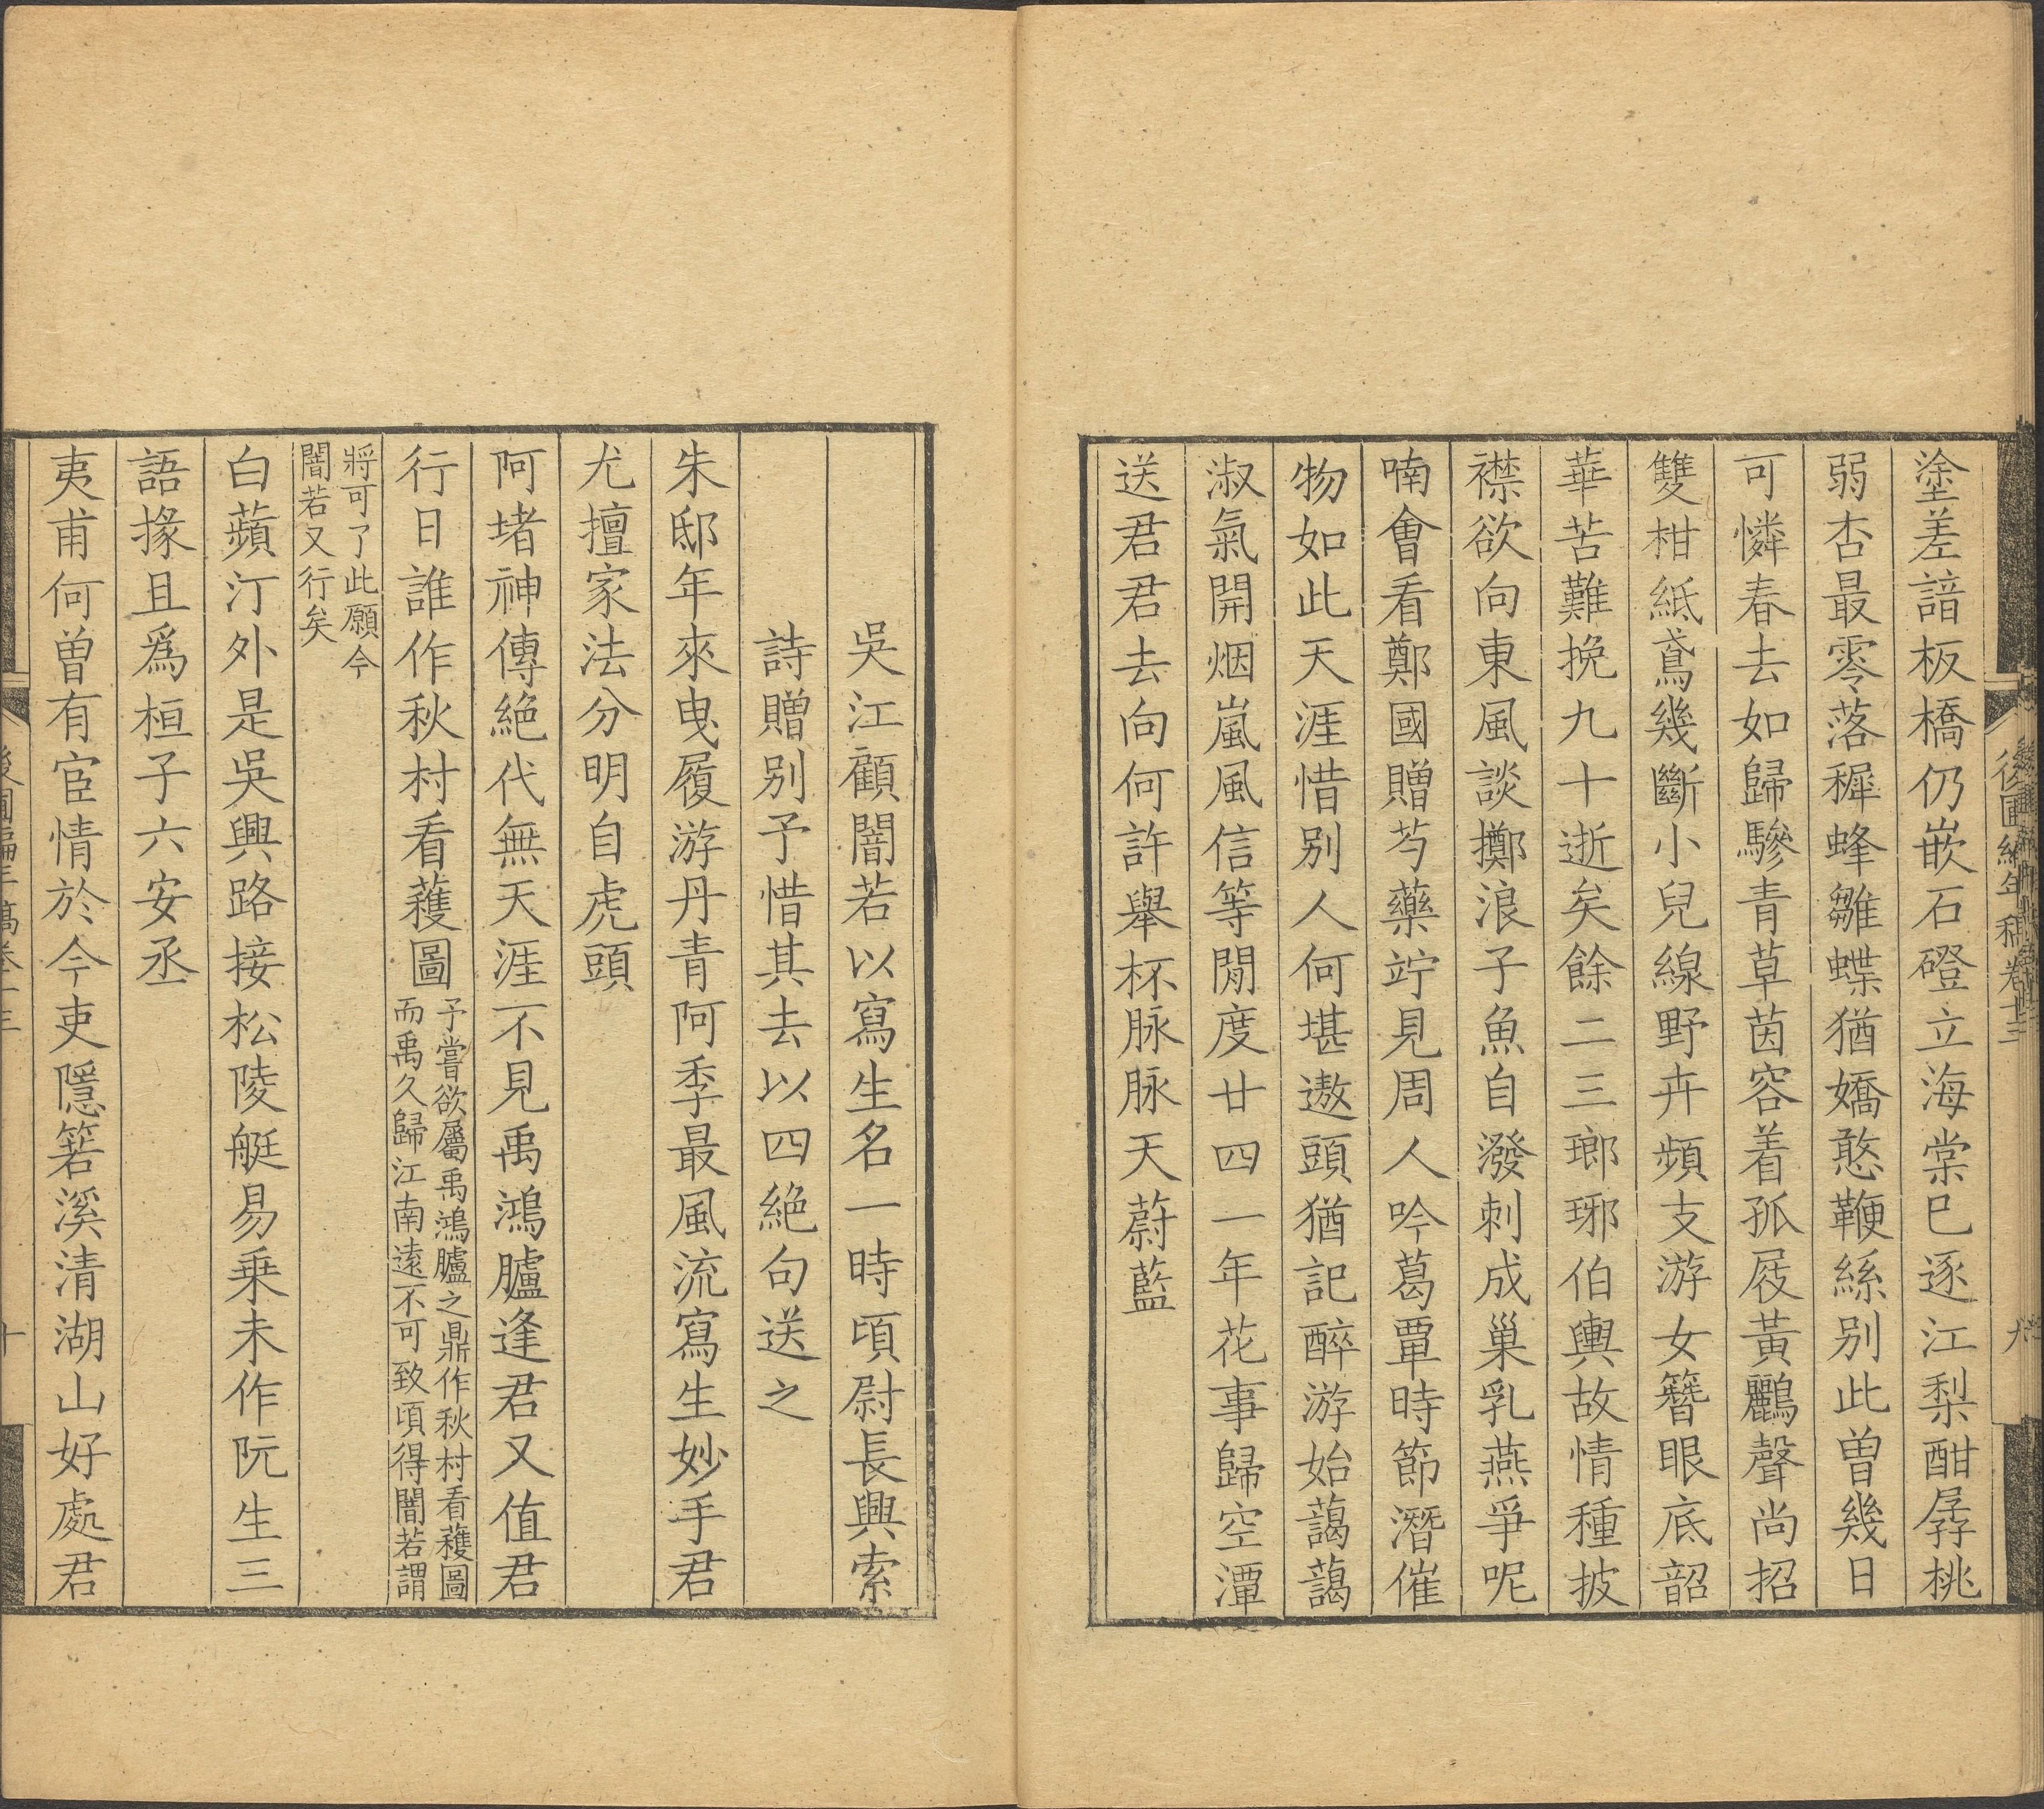 後圃編年稿卷十三
九
塗差諳板橋仍嵌石磴立海棠巳逐江梨酣孱桃
弱杏最零落穉蜂雛蝶猶嬌憨鞭絲別此曾幾日
可憐春去如歸驂青草茵容着孤屐黃鸝聲尚招
雙柑紙鳶幾斷小兒線野卉頻支游女簪眼底韶
華苦難挽九十逝矣餘二三瑯琊伯輿故情種披
襟欲向東風談擲浪子魚自潑刺成巢乳燕爭呢
喃會看鄭國贈芍藥竚見周人吟葛覃時節潛催
物如此天涯惜別人何堪遨頭猶記醉游始藹藹
淑氣開烟嵐風信等閒度廿四一年花事歸空潭
送君君去向何許舉杯脉脉天蔚藍
吳江顧闇若以寫生名一時頃尉長興索
詩贈別予惜其去以四絕句送之
朱邸年來曳履游丹青阿季最風流寫生妙手君
尤擅家法分明自虎頭
阿堵神傳絕代無天涯不見禹鴻臚逢君又值君
行日誰作秋村看穫圖
予嘗欲屬禹鴻臚之鼎作秋村看穫圖
而禹久歸江南遠不可致頃得闇若謂
將可了此願今
闇若又行矣
白蘋汀外是吳興路接松陵艇易乗未作阮生三
語掾且爲桓子六安丞
夷甫何曾有宦情於今吏隱箬溪清湖山好處君
後圃編年稿卷十三
十